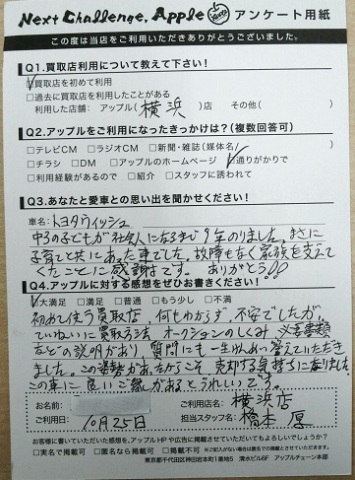 Next Challenge, Apple アンケート用紙
この度は当店をご利用いただきありがとうございました。
Q1.買取店利用について教えて下さい!
☑買取店を初めて利用
□過去に買取店を利用したことがある
利用した店舗: アップル(横浜)店 その他( )
Q2.アップルをご利用になったきっかけは?(複数回答可)
□テレビCM □ラジオCM □新聞・雑誌(媒体名 )
□チラシ □DM □アップルのホームページ ☑通りがかりで
□利用経験があるので □紹介 □スタッフに誘われて
Q3.あなたと愛車との思い出を聞かせください!
車名: トヨタウィッシュ
中3の子どもが社会人になるまで9年のりました。まさに
子育てと共にあった車でした。故障もなく家族を支えて
くれたことに感謝です。ありがとう!!
Q4.アップルに対する感想をぜひお書きください!
☑大満足 □満足 □普通 □もう少し □不満
初めて使う買取店、何もわからず、不安でしたが、
ていねいに買取方法、オークションのしくみ、必要書類
などの説明があり、質問にも一生けんめい答えていただき
ました。この姿勢があったからこそ売却する気持ちになりました
この車に良いご縁があるとうれしいです。
お名前:
ご利用店名: 横浜店
ご利用日: 10月25日
担当スタッフ名: 橋本 厚
お客様に書いていただいた感想を、アップルHPや広告に掲載させていただいてもよろしいでしょうか?
□実名で掲載可 □匿名なら掲載可 □掲載不可
東京都千代田区神田岩本町1番地5 清水ビル6F アップルチェーン本部